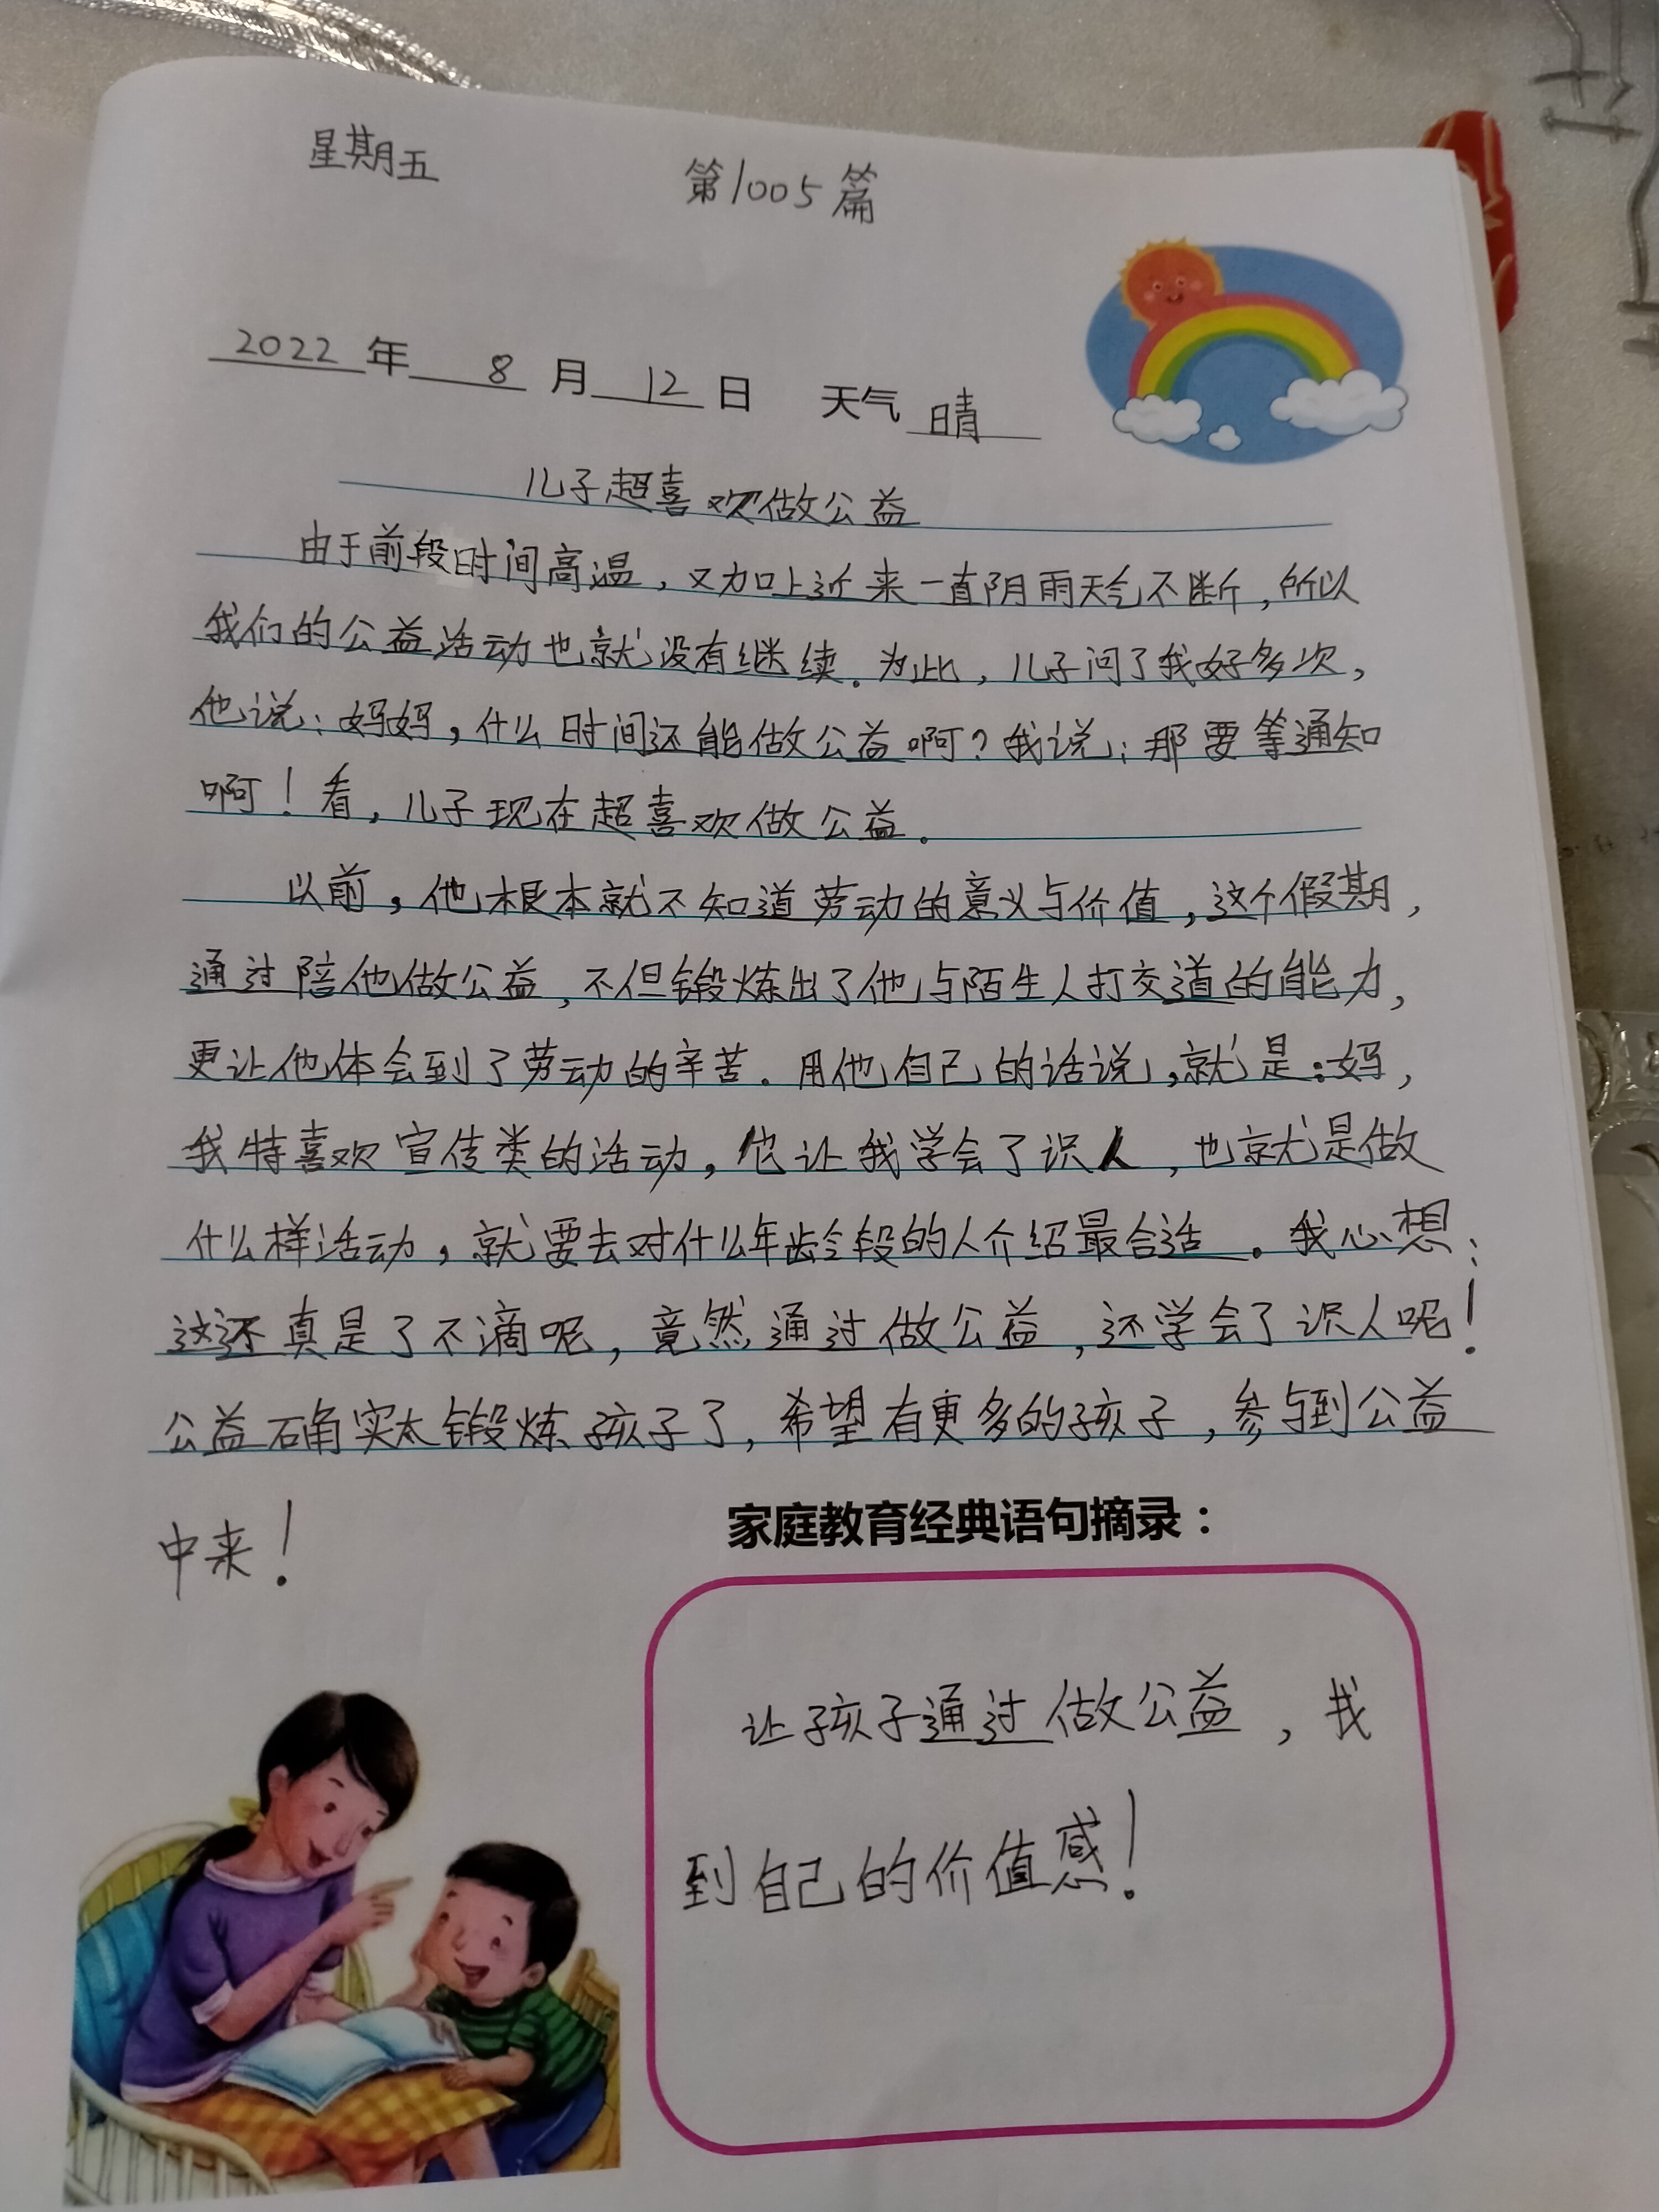 星期五 第1005篇
2022年 8月 12日 天气 晴
儿子超喜欢做公益
由于前段时间高温，又加上近来一直阴雨天气不断，所以
我们的公益活动也就没有继续。为此，儿子问了我好多次，
他说：妈妈，什么时间还能做公益啊？我说：那要等通知
啊！看，儿子现在超喜欢做公益。
以前，他根本就不知道劳动的意义与价值，这个假期，
通过陪他做公益，不但锻炼出了他与陌生人打交道的能力，
更让他体会到了劳动的辛苦。用他自己的话说，就是：妈，
我特喜欢宣传类的活动，他让我学会了识人，也就是做
什么样活动，就要去对什么年龄段的人介绍最合适。我心想：
这还真是了不滴呢，竟然通过做公益，还学会了识人呢！
公益确实太锻炼孩子了，希望有更多的孩子，参与到公益
中来！
家庭教育经典语句摘录：
让孩子通过做公益，找
到自己的价值感！